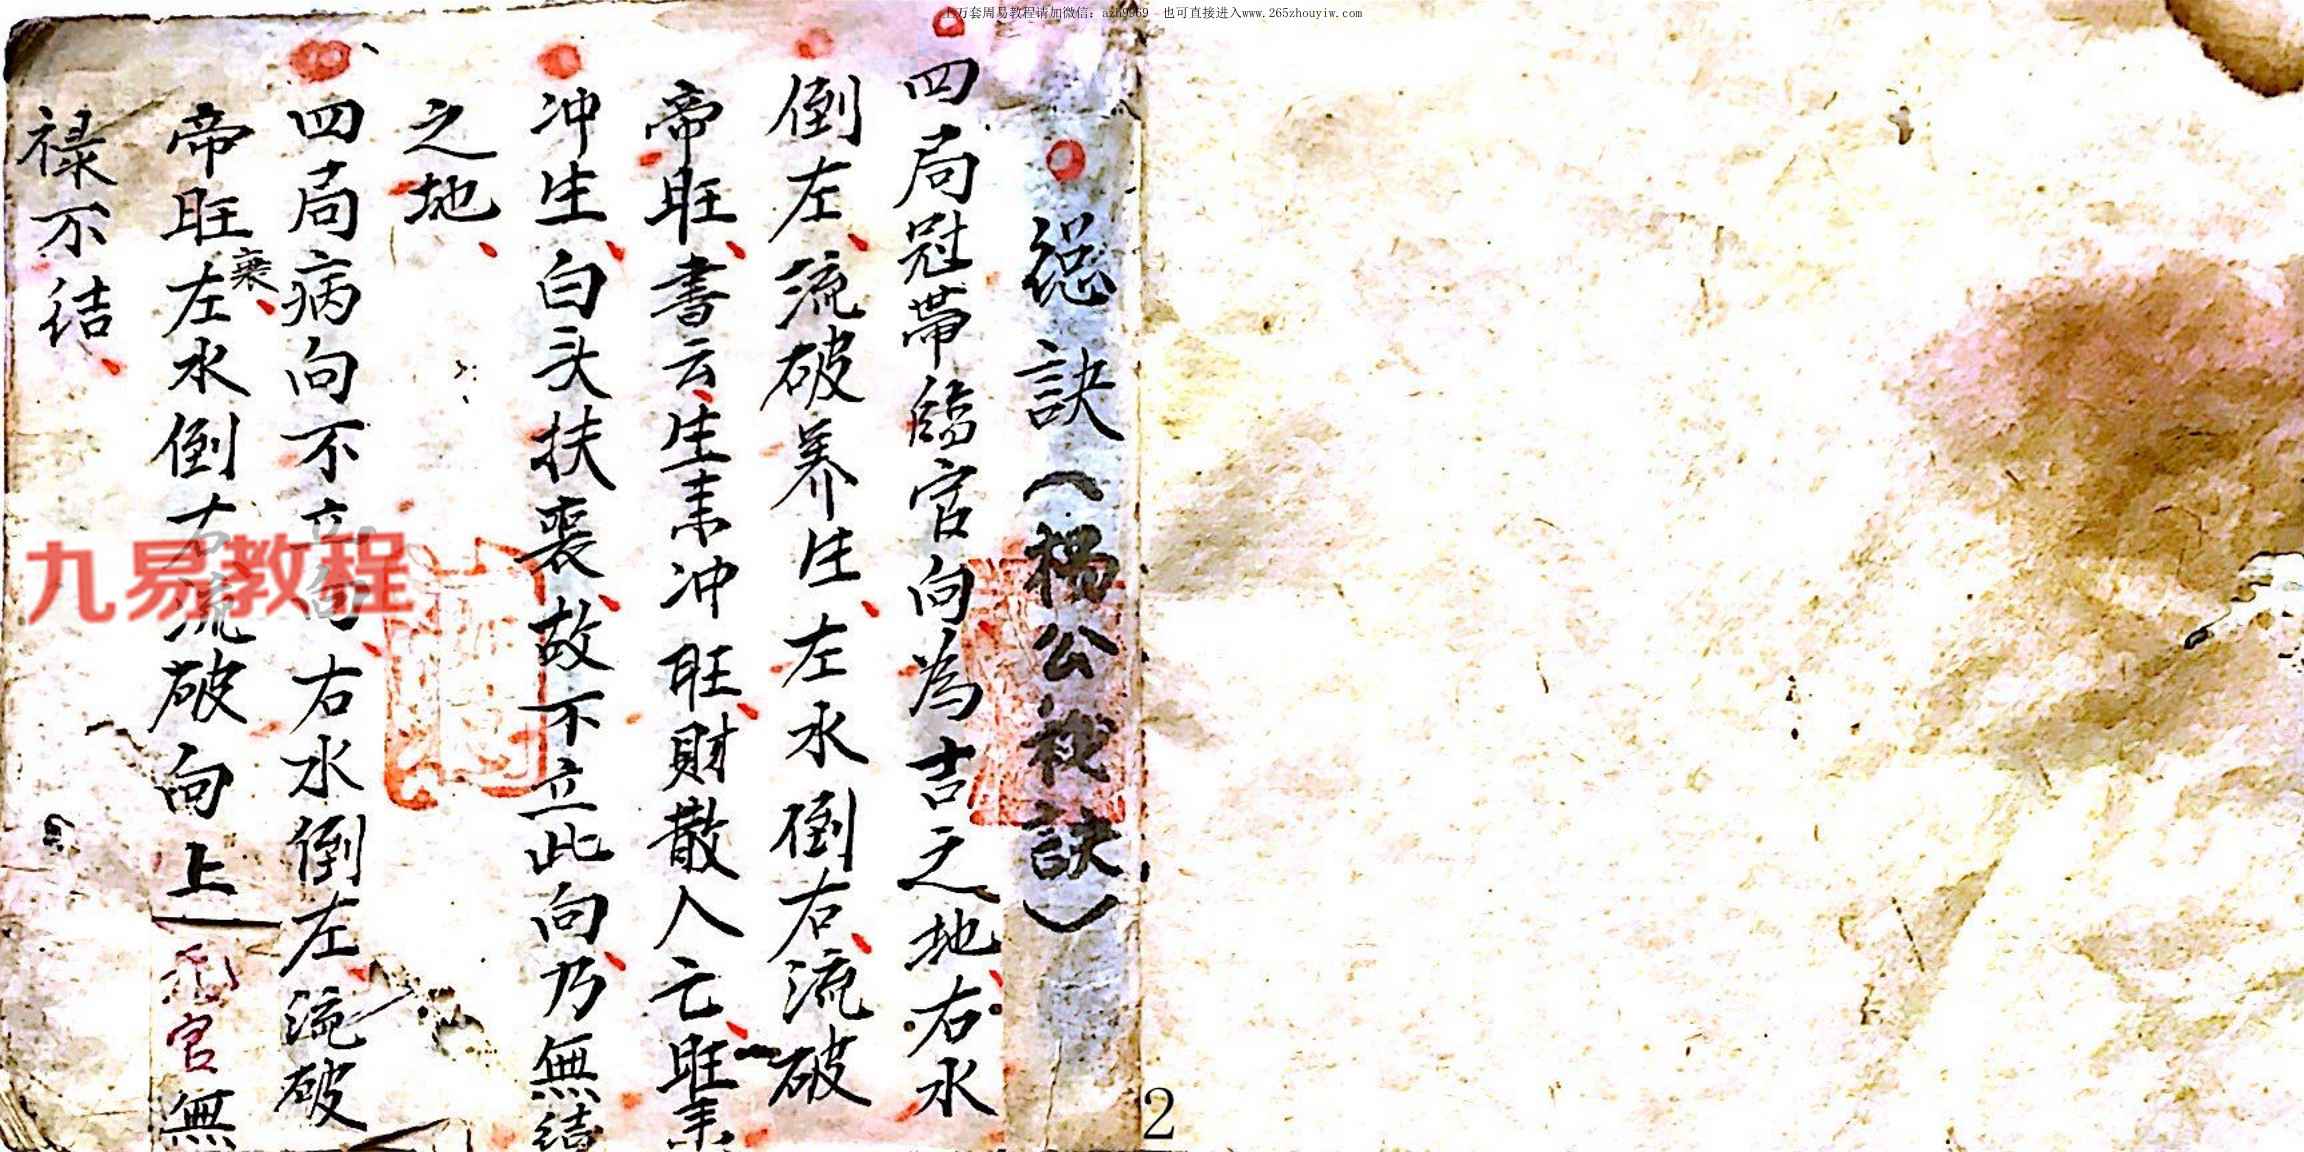 上万套周易教程请加微信：azh9969 也可直接进入www.265zhouyiw.com
總訣（楊公秘訣）
四局冠帶臨官向為吉之地右水
倒左流破养生左水倒右流破
帝旺書云生来冲旺財散人亡旺来
冲生白头扶丧故不立此向乃無结
之地
四局病向不立向右水倒左流破
帝旺衰左水倒右流破向上禄官無
禄不结
九易教程
2